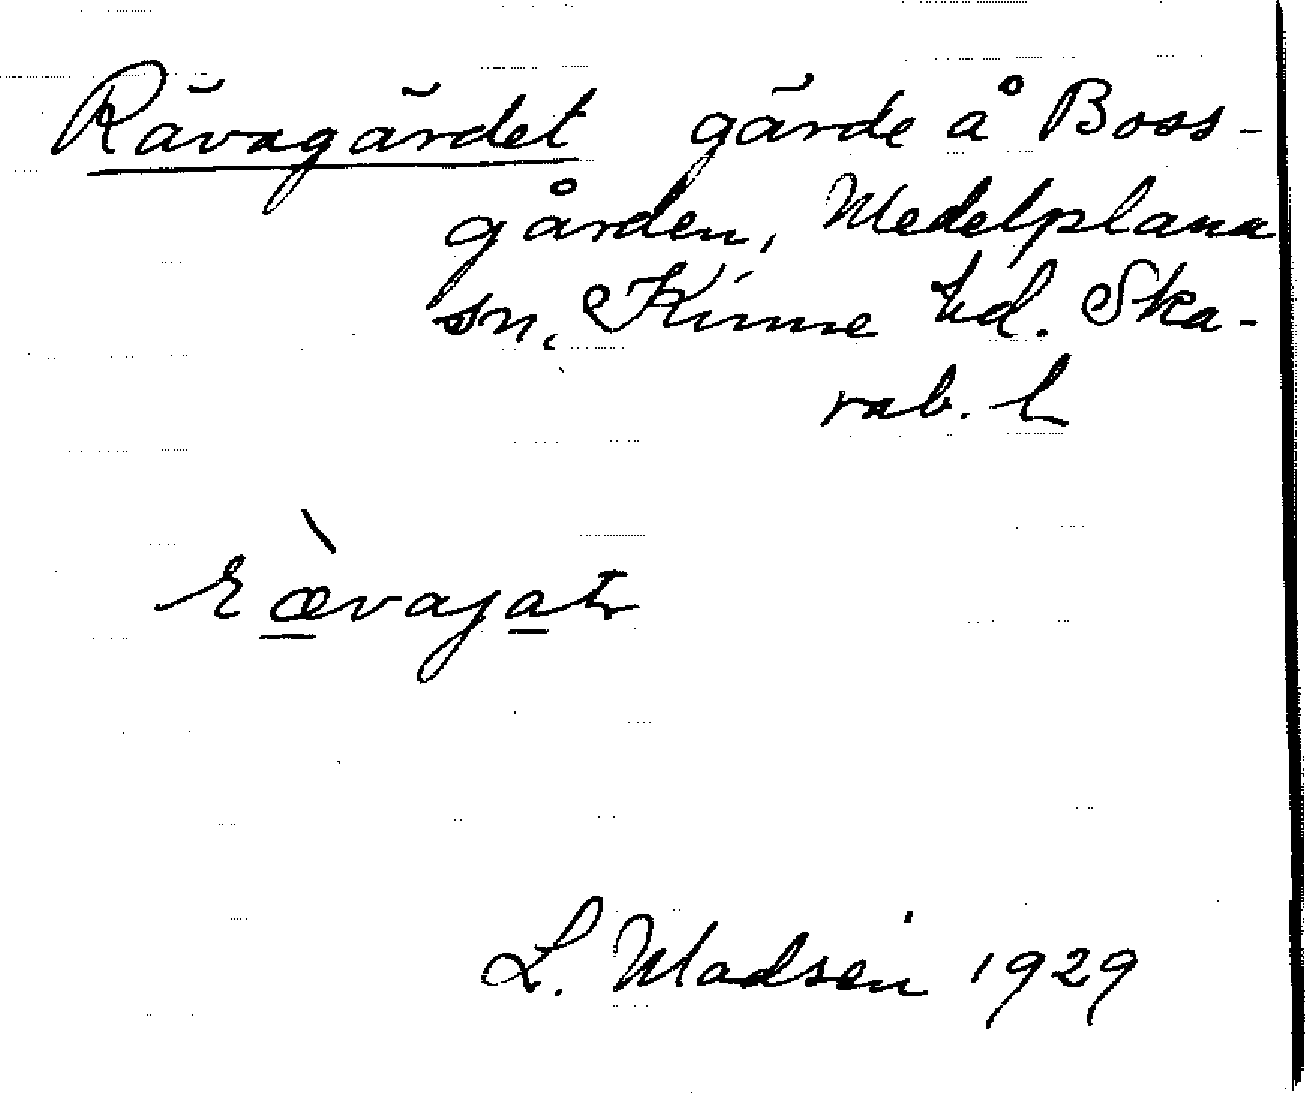 Rävagärdet gärde å Boss-
gården, Medelplana
sn, Kinne hd. Ska-
rab. l
ræ̀vajat
L. Madsén 1929